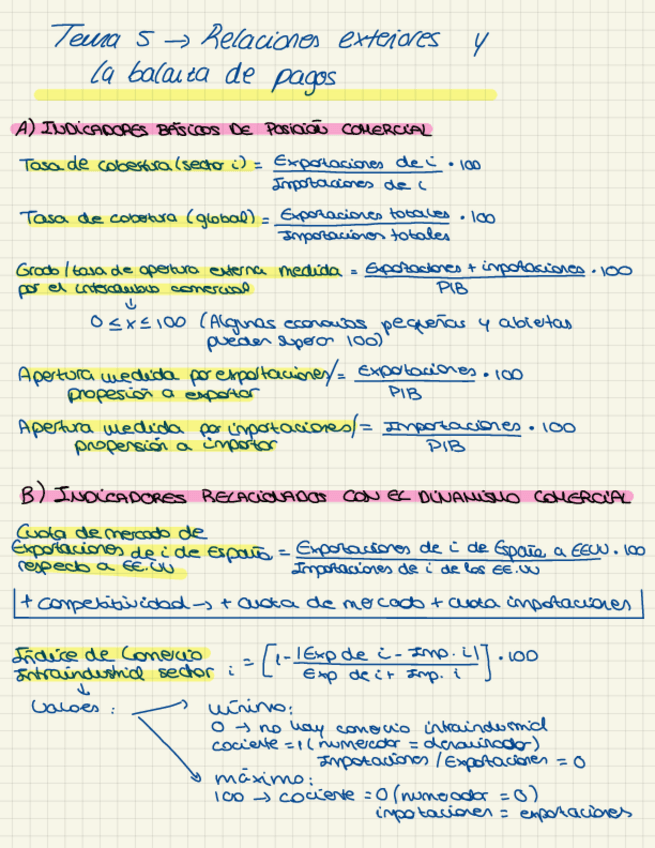 Tema 5 → Relaciones exteriores y
la balanza de pagos
A) INDICADORES BÁSICOS DE POSICIÓN COMERCIAL
Tasa de cobertura (sector i) = Exportaciones de i / Importaciones de i · 100
Tasa de cobertura (global) = Exportaciones totales / Importaciones totales · 100
Grado/tasa de apertura externa medida = Exportaciones + importaciones / PIB · 100
por el intercambio comercial
↓
0 ≤ x ≤ 100 (Algunas economías pequeñas y abiertas
pueden superar 100)
Apertura medida por exportaciones/ = Exportaciones / PIB · 100
propesión a exportar
Apertura medida por importaciones/ = Importaciones / PIB · 100
propensión a importar
B) INDICADORES RELACIONADOS CON EL DINAMISMO COMERCIAL
Cuota de mercado de
Exportaciones de i de España = Exportaciones de i de España a EEUU / Importaciones de i de los EE.UU · 100
respecto a EE.UU
+ competitividad → + cuota de mercado + cuota importaciones
Índice de Comercio
Intraindustrial sector i = [1 - |Exp de i - Imp. i| / Exp de i + Imp. i] · 100
↓
Valores :
mínimo:
0 → no hay comercio intraindustrial
cociente = 1 (numerador = denominador)
Importaciones / Exportaciones = 0
máximo:
100 → cociente = 0 (numerador = 0)
importaciones = exportaciones